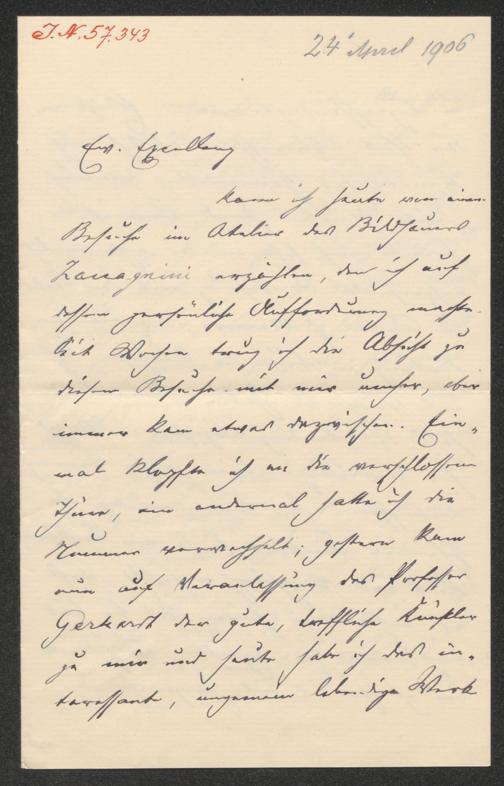 J.N. 57.343
24 April 1906
Ew. Excellenz
kann ich heute von einem
Besuche im Atelier des Bildhauers
Zaccagnini erzählen, den ich auf
dessen persönliche Aufforderung machte.
Seit Wochen trug ich die Absicht zu
diesem Besuche mit mir umher, aber
immer kam etwas dazwischen. Ein-
mal klopfte ich an die verschlossene
Thüre, ein andermal hatte ich die
Nummer verwechselt; gestern kam
nun auf Veranlassung des Professor
Gerhardt der gute, treffliche Künstler
zu mir und heute habe ich das in-
teressante, ungemein lebendige Werk